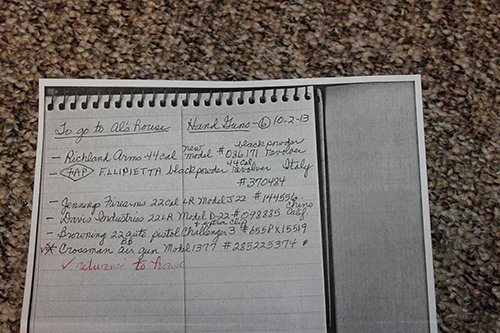 To go to Al's house Hand Guns - 6 10-2-13
- Richland Arms 44 cal new model # 036171 black powder revolver
- FAP F.LLIPIETTA black powder 44 cal. revolver Italy
#370484
- Jennings Firearms 22 Cal LR Model J22 # 144556
- Davis Industries 22LR Model D-22 # 098885 Chino Calif.
- Browning 22 auto pistol Challenger 3 & extra clip # 655PX15519
✓* Crossman BB Air gun Model 1377 # 285225374 *
✓ returns to house